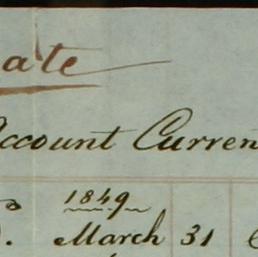 ate
ccount Curren
1849
March 31